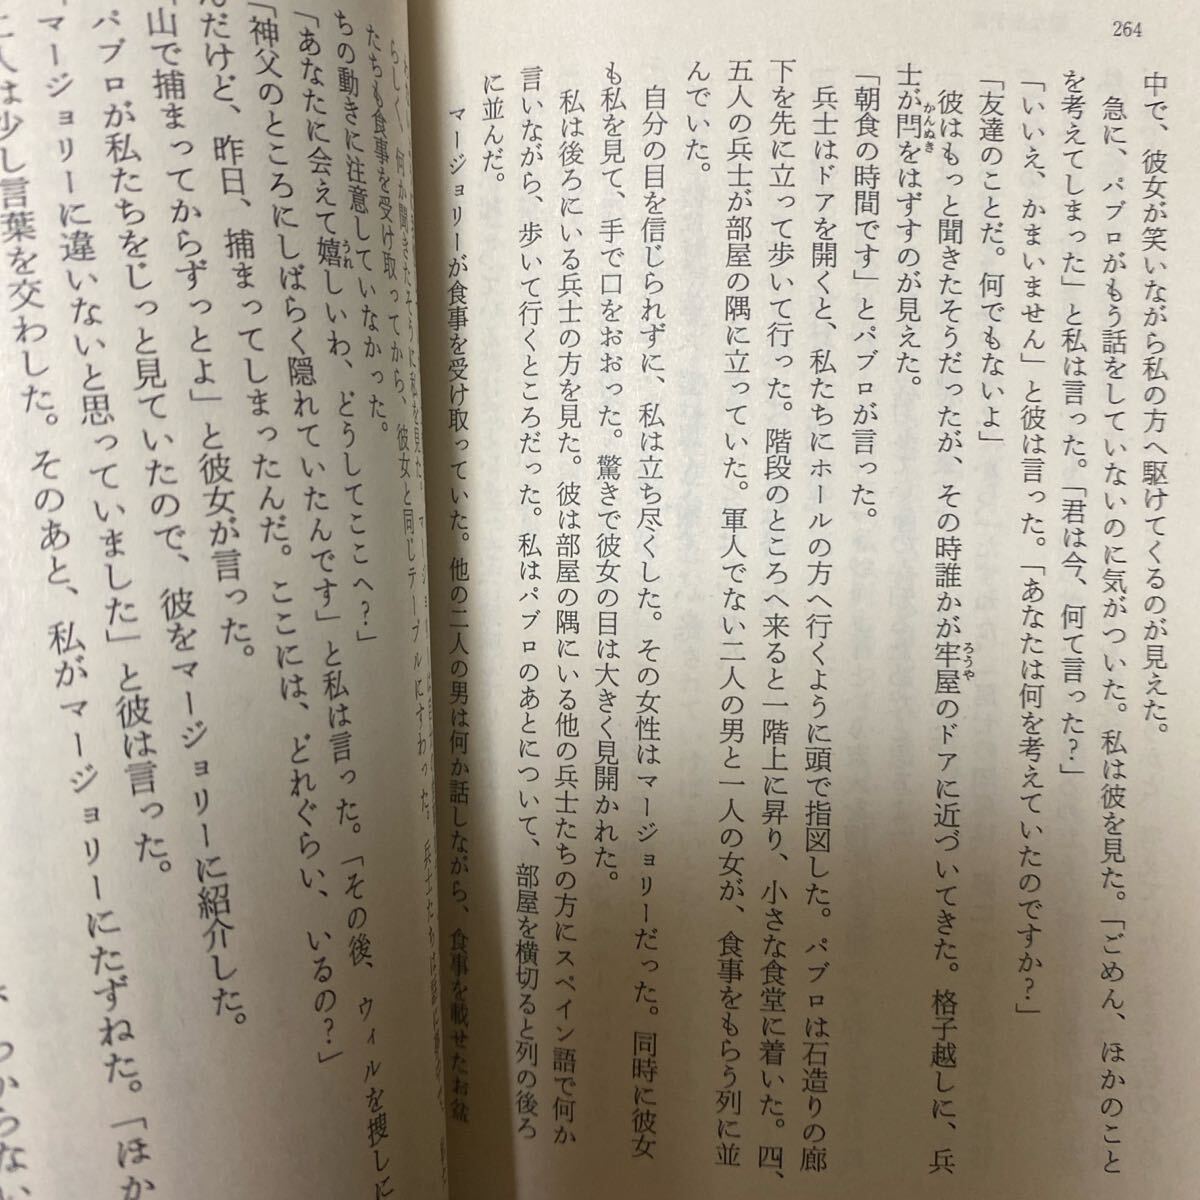 264
中で、彼女が笑いながら私の方へ駆けてくるのが見えた。
急に、パブロがもう話をしていないのに気がついた。私は彼を見た。「ごめん、ほかのこと
を考えてしまった」と私は言った。「君は今、何て言った?」
「いいえ、かまいません」と彼は言った。「あなたは何を考えていたのですか?」
「友達のことだ。何でもないよ」
彼はもっと聞きたそうだったが、その時誰かが牢屋のドアに近づいてきた。格子越しに、兵
ろうや
士が閂をはずすのが見えた。
かんぬき
「朝食の時間です」とパブロが言った。
兵士はドアを開くと、私たちにホールの方へ行くように頭で指図した。パブロは石造りの廊
下を先に立って歩いて行った。階段のところへ来ると一階上に昇り、小さな食堂に着いた。四、
五人の兵士が部屋の隅に立っていた。軍人でない二人の男と一人の女が、食事をもらう列に並
んでいた。
自分の目を信じられずに、私は立ち尽くした。その女性はマージョリーだった。同時に彼女
も私を見て、手で口をおおった。驚きで彼女の目は大きく見開かれた。
私は後ろにいる兵士の方を見た。彼は部屋の隅にいる他の兵士たちの方にスペイン語で何か
言いながら、歩いて行くところだった。私はパブロのあとについて、部屋を横切ると列の後ろ
に並んだ。
マージョリーが食事を受け取っていた。他の二人の男は何か話しながら、食事を載せたお盆
らしく、何か聞きたそうに私を見た。
たちも食事を受け取ってから、彼女と同じテーブルにすわった。
ちの動きに注意していなかった。
「あなたに会えて嬉しいわ、どうしてここへ?」
うれ
「神父のところにしばらく隠れていたんです」と私は言った。「その後、ウィルを捜しに
んだけど、昨日、捕まってしまったんだ。ここには、どれぐらい、いるの?」
山で捕まってからずっとよ」と彼女が言った。
パブロが私たちをじっと見ていたので、彼をマージョリーに紹介した。
マージョリーに違いないと思っていました」と彼は言った。
二人は少し言葉を交わした。そのあと、私がマージョリーにたずねた。「ほか
わからない